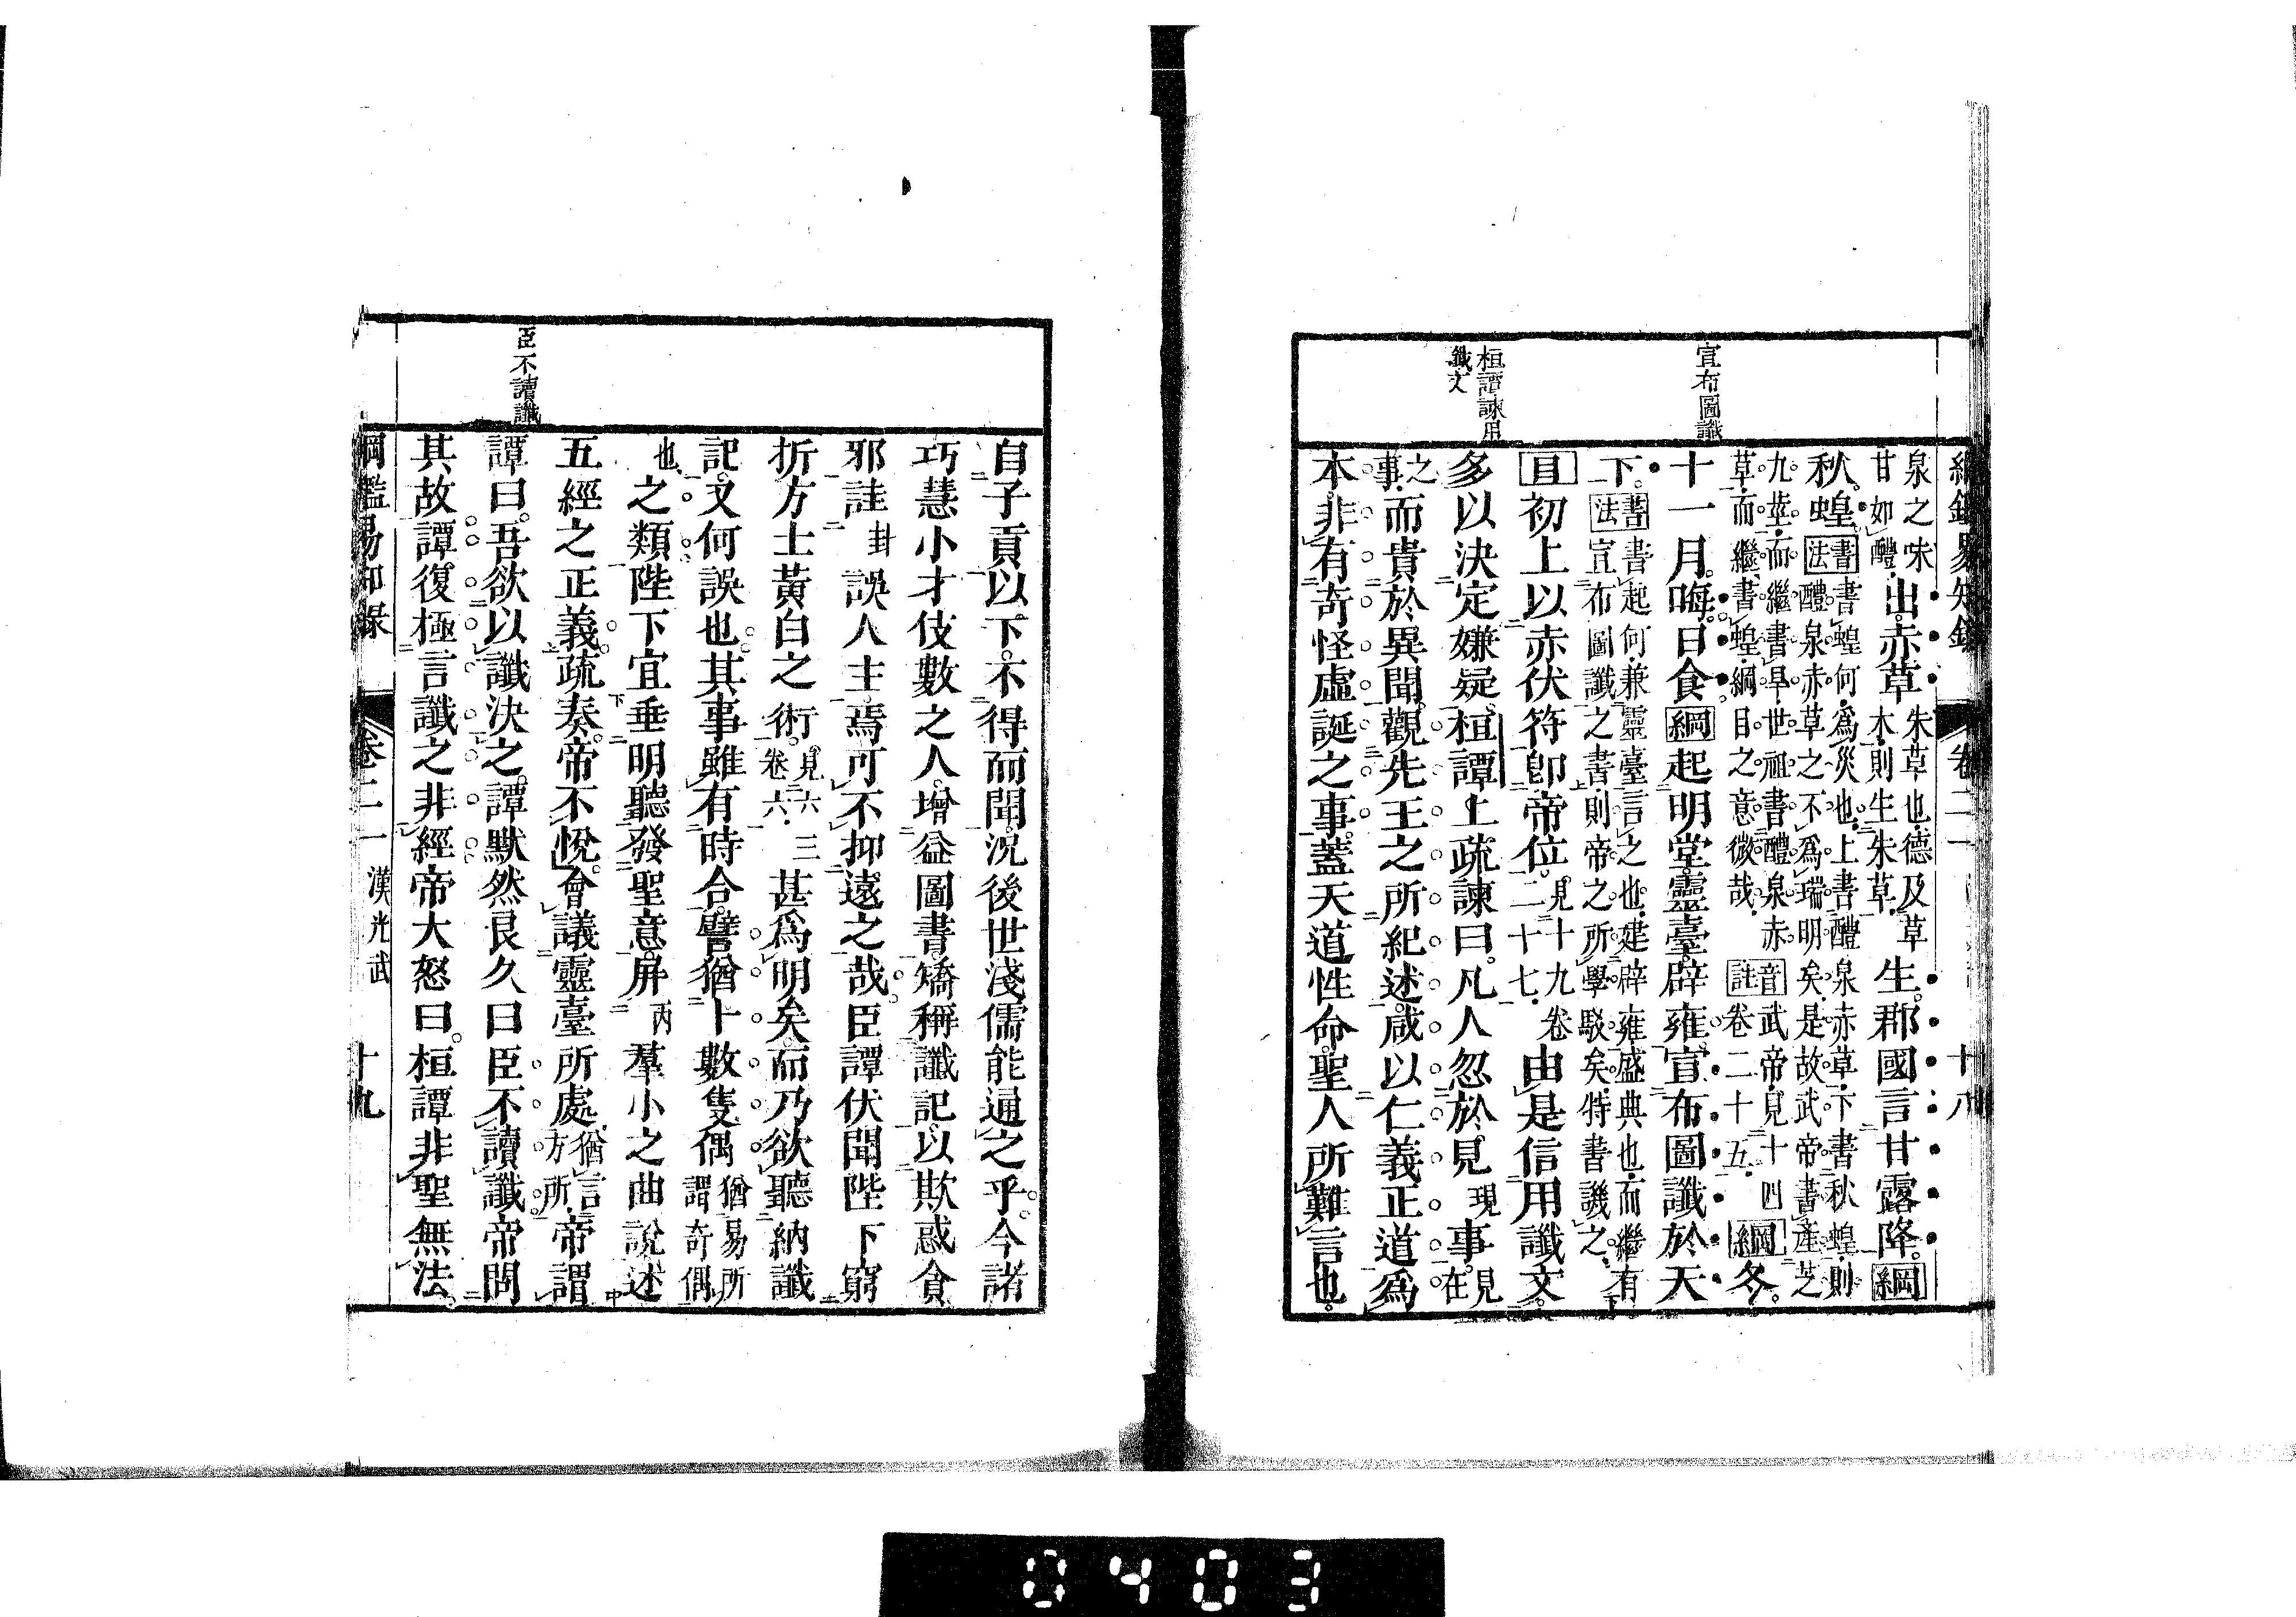 綱鑑易知錄 卷二一 十八
宣布圖讖
桓譚諫用
讖文
泉之味甘如醴出赤草朱草也德及草木則生朱草生郡國言甘露降綱
秋蝗書法書蝗何爲災也上書醴泉赤草下書秋蝗則醴泉赤草之不爲瑞明矣是故武帝書產芝
九莖而繼書旱世祖書醴泉赤草而繼書蝗綱目之意微哉音註武帝見十四卷二十五綱冬
十一月晦日食綱起明堂靈臺辟雍宣布圖讖於天
下書法書起何兼靈臺言之也建辟雍盛典也而繼有宣布圖讖之書則帝之所學駁矣特書譏之
目初上以赤伏符卽帝位見十九卷二十七由是信用讖文
多以決定嫌疑桓譚上疏諫曰凡人忽於見現事見在
之事而貴於異聞觀先王之所紀述咸以仁義正道爲
本非有奇怪虛誕之事蓋天道性命聖人所難言也
臣不讀讖
自子貢以下不得而聞況後世淺儒能通之乎今諸
巧慧小才伎數之人增益圖書矯稱讖記以欺惑貪
邪詿卦誤人主焉可不抑遠之哉臣譚伏聞陛下窮
折方士黃白之術見六三卷六甚爲明矣而乃欲聽納讖
記又何誤也其事雖有時合譬猶卜數隻偶猶易所謂奇偶
也之類陛下宜垂明聽發聖意屏丙羣小之曲說述
五經之正義疏奏帝不悅會議靈臺所處猶言方所帝謂
譚曰吾欲以讖決之譚默然良久曰臣不讀讖帝問
其故譚復極言讖之非經帝大怒曰桓譚非聖無法
綱鑑易知錄 卷二一 漢光武 十九
0403